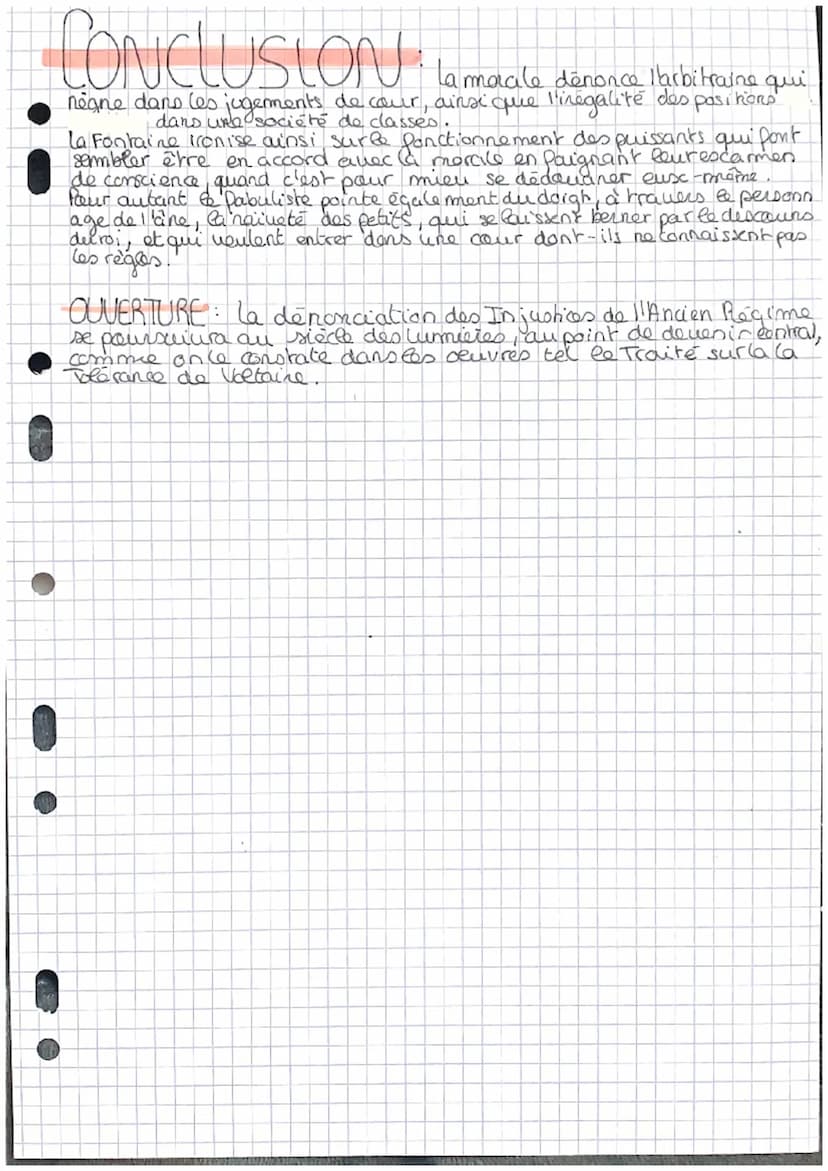 CONCLUSION : La morale dénonce l'arbitraire qui
règne dans les jugements de cour, ainsi que l'inégalité des positions
dans une société de classes.
La Fontaine ironise ainsi sur le fonctionnement des puissants qui font
sembler être en accord avec la morale en faignant leur escamen
de conscience, quand c'est pour mieu se dédouaner eux-même.
Pour autant le fabuliste pointe également du doigh, à travers le personn
age de l'âne, la naïveté des petits, qui se laissent berner par le descouns
du roi, et qui veulent entrer dans une cour dont-ils ne connaissent pas
les règles.
OUVERTURE : La dénonciation des Injustices de l'Ancien Régime
se poursuivra au siècle des Lumières, au point de devenir central,
comme on le constate dans les œuvres tel le Traité sur la la
Tolérance de Voltaire.